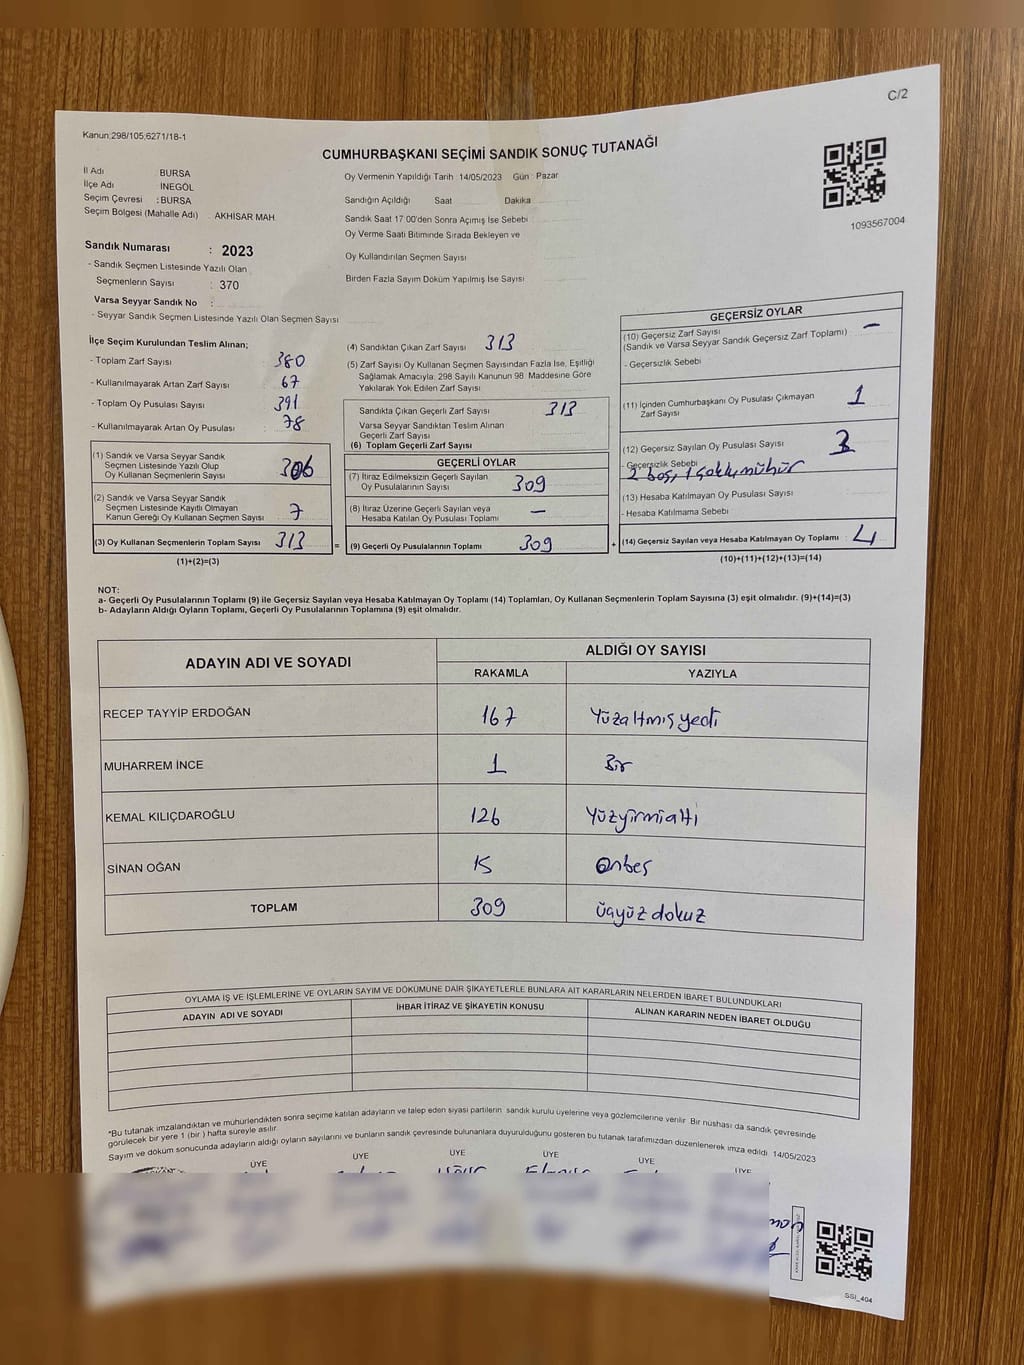 C/2
Kanun:298/105;6271/18-1
CUMHURBAŞKANI SEÇİMİ SANDIK SONUÇ TUTANAĞI
İl Adı : BURSA
İlçe Adı İNEGÖL
Seçim Çevresi : BURSA
Seçim Bölgesi (Mahalle Adı) AKHİSAR MAH.
Sandık Numarası : 2023
- Sandık Seçmen Listesinde Yazılı Olan
Seçmenlerin Sayısı : 370
Varsa Seyyar Sandık No :
- Seyyar Sandık Seçmen Listesinde Yazılı Olan Seçmen Sayısı
Oy Vermenin Yapıldığı Tarih : 14/05/2023 Gün : Pazar
Sandığın Açıldığı Saat Dakika
Sandık Saat 17:00'den Sonra Açımış İse Sebebi
Oy Verme Saati Bitiminde Sırada Bekleyen ve
Oy Kullandırılan Seçmen Sayısı
Birden Fazla Sayım Döküm Yapılmış İse Sayısı
1093567004
İlçe Seçim Kurulundan Teslim Alınan;
- Toplam Zarf Sayısı 380
- Kullanılmayarak Artan Zarf Sayısı 67
- Toplam Oy Pusulası Sayısı 391
- Kullanılmayarak Artan Oy Pusulası 78
(1) Sandık ve Varsa Seyyar Sandık
Seçmen Listesinde Yazılı Olup
Oy Kullanan Seçmenlerin Sayısı 306
(2) Sandık ve Varsa Seyyar Sandık
Seçmen Listesinde Kayıtlı Olmayan
Kanun Gereği Oy Kullanan Seçmen Sayısı 7
(3) Oy Kullanan Seçmenlerin Toplam Sayısı 313
(1)+(2)=(3)
(4) Sandıktan Çıkan Zarf Sayısı 313
(5) Zarf Sayısı Oy Kullanan Seçmen Sayısından Fazla İse, Eşitliği
Sağlamak Amacıyla; 298 Sayılı Kanunun 98. Maddesine Göre
Yakılarak Yok Edilen Zarf Sayısı
Sandıkta Çıkan Geçerli Zarf Sayısı 313
Varsa Seyyar Sandıktan Teslim Alınan
Geçerli Zarf Sayısı
(6) Toplam Geçerli Zarf Sayısı
GEÇERLİ OYLAR
(7) İtiraz Edilmeksizin Geçerli Sayılan
Oy Pusulalarının Sayısı 309
(8) İtiraz Üzerine Geçerli Sayılan veya
Hesaba Katılan Oy Pusulası Toplamı —
= (9) Geçerli Oy Pusulalarının Toplamı 309
GEÇERSİZ OYLAR
(10) Geçersiz Zarf Sayısı
(Sandık ve Varsa Seyyar Sandık Geçersiz Zarf Toplamı) —
- Geçersizlik Sebebi
(11) İçinden Cumhurbaşkanı Oy Pusulası Çıkmayan
Zarf Sayısı 1
(12) Geçersiz Sayılan Oy Pusulası Sayısı 3
- Geçersizlik Sebebi
2 boş, 1 çoklu mühür
(13) Hesaba Katılmayan Oy Pusulası Sayısı
- Hesaba Katılmama Sebebi
+ (14) Geçersiz Sayılan veya Hesaba Katılmayan Oy Toplamı : 4
(10)+(11)+(12)+(13)=(14)
NOT:
a- Geçerli Oy Pusulalarının Toplamı (9) ile Geçersiz Sayılan veya Hesaba Katılmayan Oy Toplamı (14) Toplamları, Oy Kullanan Seçmenlerin Toplam Sayısına (3) eşit olmalıdır. (9)+(14)=(3)
b- Adayların Aldığı Oyların Toplamı, Geçerli Oy Pusulalarının Toplamına (9) eşit olmalıdır.
ADAYIN ADI VE SOYADI ALDIĞI OY SAYISI
RAKAMLA YAZIYLA
RECEP TAYYİP ERDOĞAN 167 Yüzaltmışyedi
MUHARREM İNCE 1 Bir
KEMAL KILIÇDAROĞLU 126 Yüzyirmialtı
SİNAN OĞAN 15 Onbeş
TOPLAM 309 üçyüz dokuz
OYLAMA İŞ VE İŞLEMLERİNE VE OYLARIN SAYIM VE DÖKÜMÜNE DAİR ŞİKAYETLERLE BUNLARA AİT KARARLARIN NELERDEN İBARET BULUNDUKLARI
ADAYIN ADI VE SOYADI İHBAR İTİRAZ VE ŞİKAYETİN KONUSU ALINAN KARARIN NEDEN İBARET OLDUĞU
*Bu tutanak imzalandıktan ve mühürlendikten sonra seçime katılan adayların ve talep eden siyasi partilerin sandık kurulu üyelerine veya gözlemcilerine verilir. Bir nüshası da sandık çevresinde
görülecek bir yere 1 (bir ) hafta süreyle asılır.
Sayım ve döküm sonucunda adayların aldığı oyların sayılarını ve bunların sandık çevresinde bulunanlara duyurulduğunu gösteren bu tutanak tarafımızdan düzenlenerek imza edildi. 14/05/2023
ÜYE ÜYE ÜYE ÜYE ÜYE ÜYE
SSİ_404